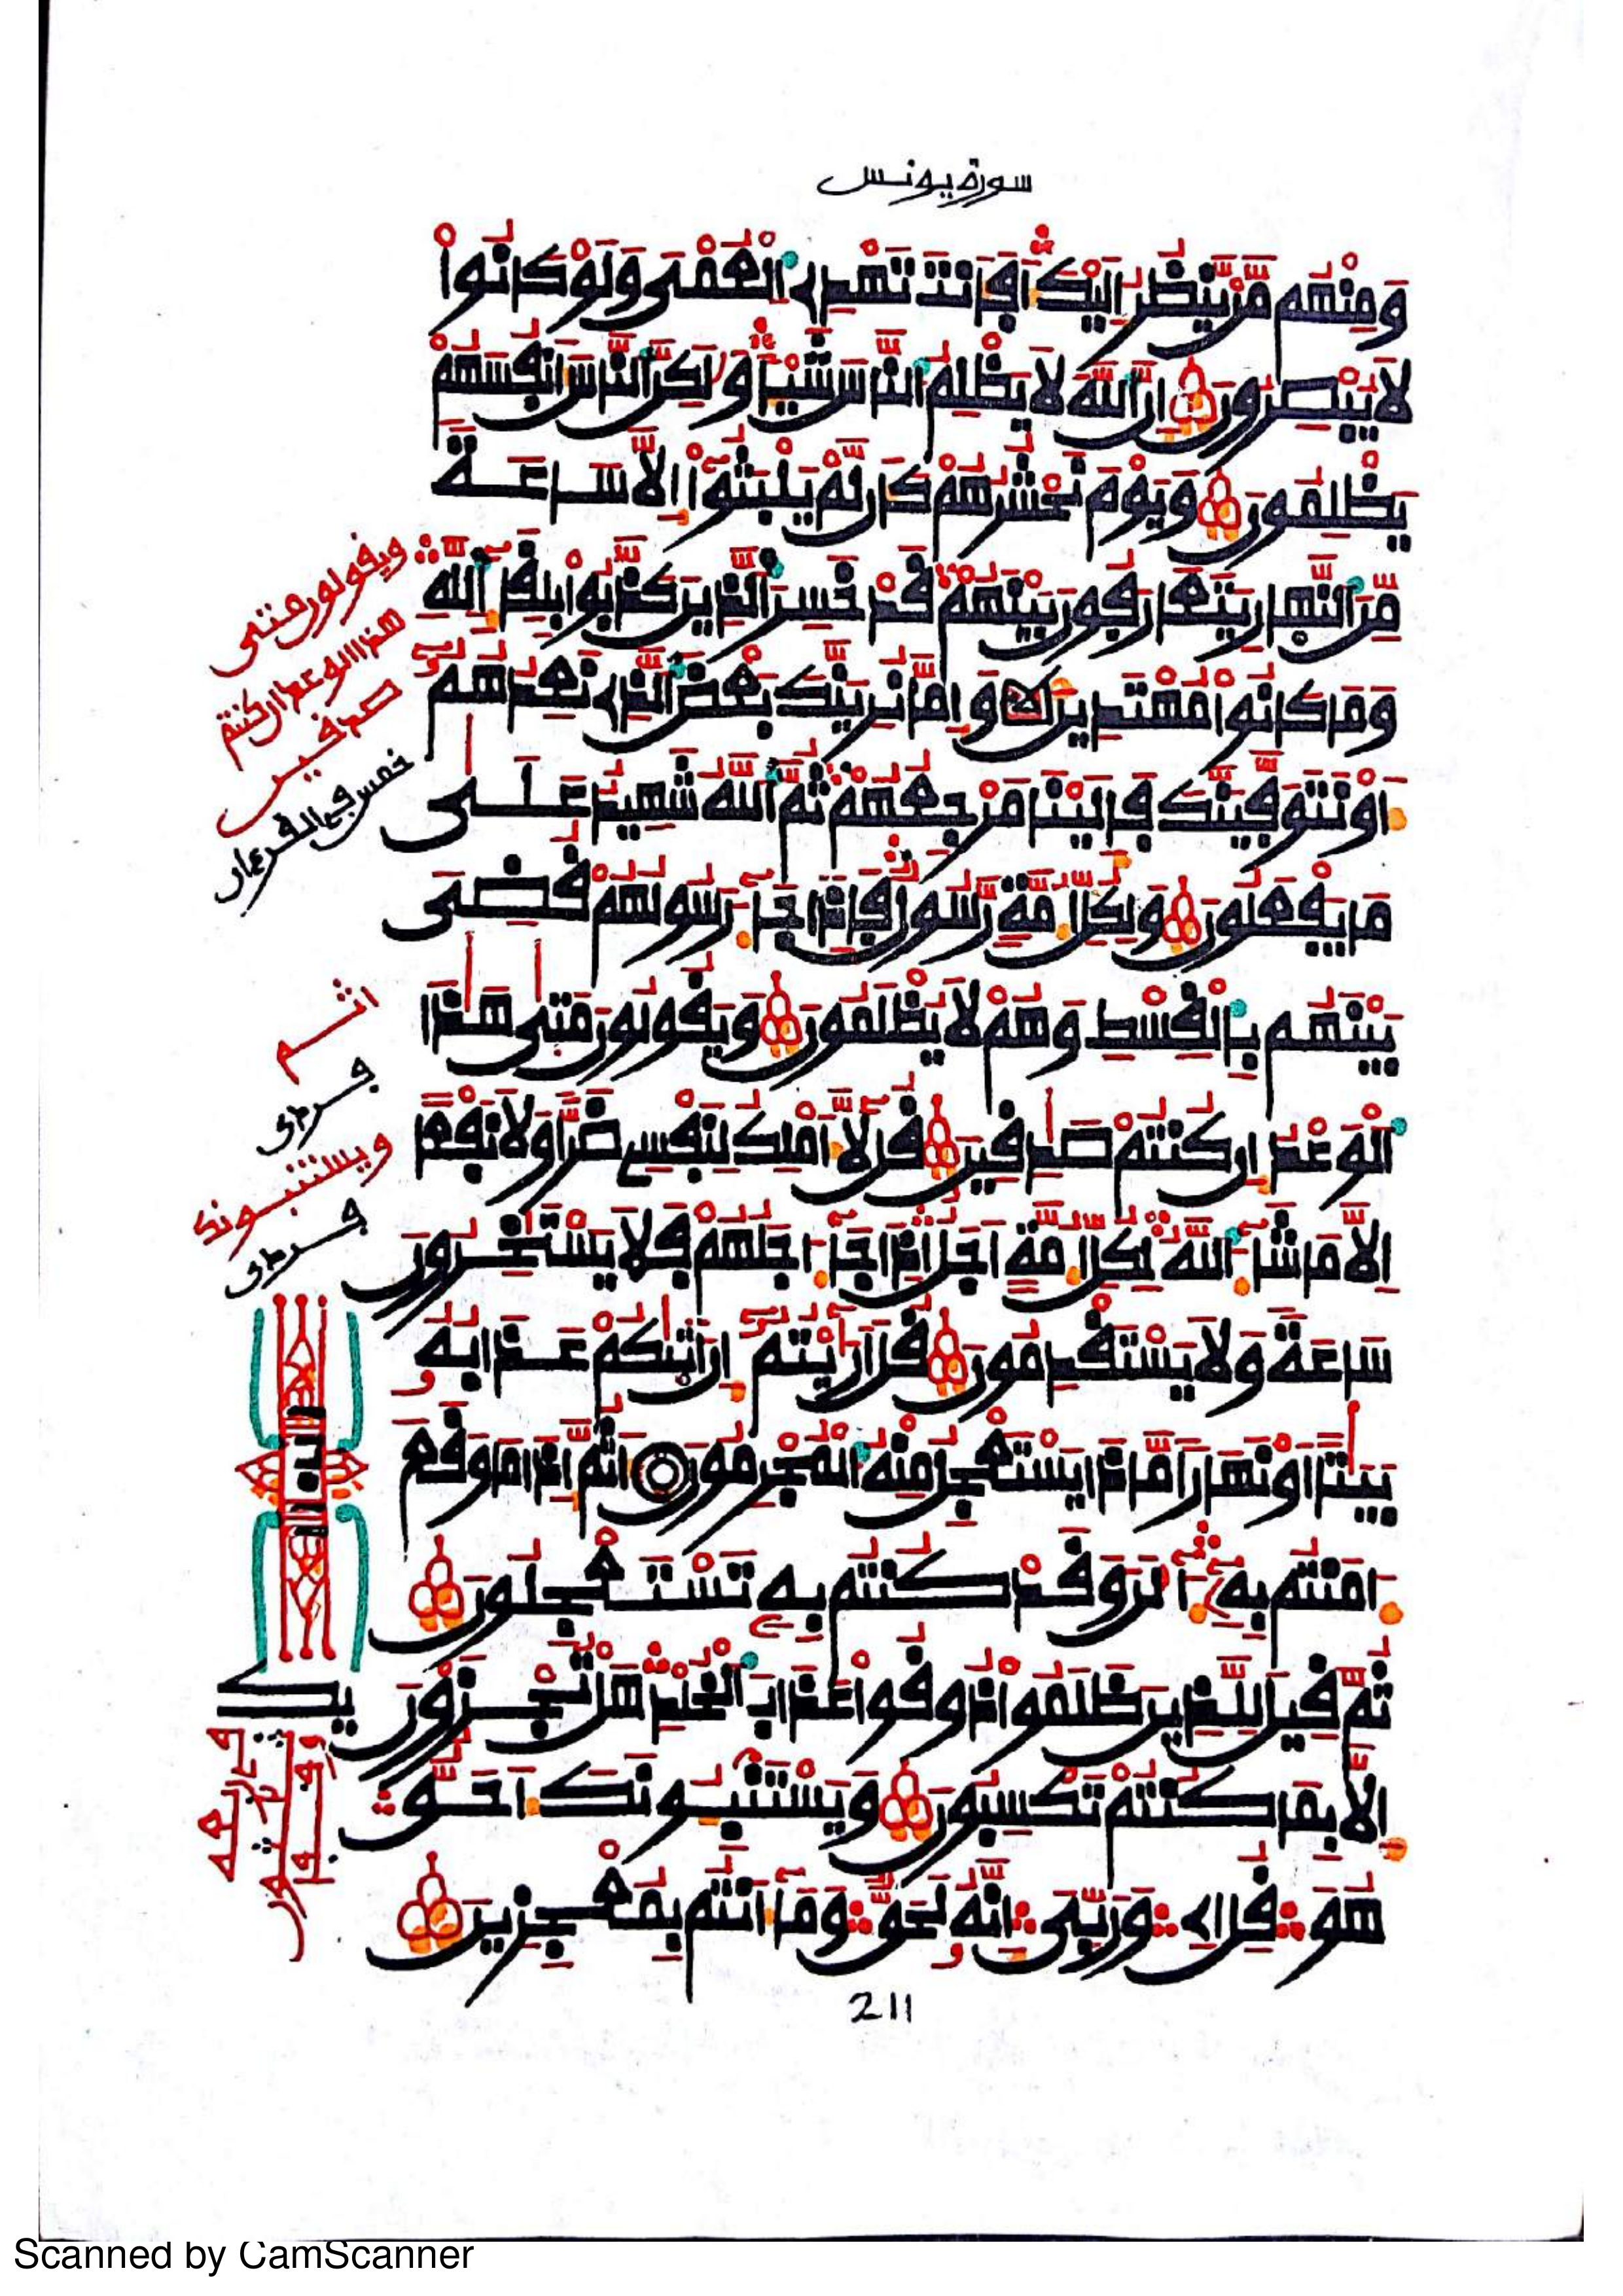 سورة يونس
وَمِنْهُم مَّنْ يَّنظُرُ إِلَيْكَ أَفَأَنتَ تَهْدِے اِ۬لْعُمْيَ وَلَوْ كَانُواْ
لَا يُبْصِرُونَ إِنَّ اَ۬للَّهَ لَا يَظْلِمُ اُ۬لنَّاسَ شَيْـٔاً وَلَٰكِنَّ اَ۬لنَّاسَ أَنفُسَهُمْ
يَظْلِمُونَ وَيَوْمَ نَحْشُرُهُمْ كَأَن لَّمْ يَلْبَثُوٓاْ إِلَّا سَاعَةً
مِّنَ اَ۬لنَّهَارِ يَتَعَارَفُونَ بَيْنَهُمْ قَدْ خَسِرَ اَ۬لذِينَ كَذَّبُواْ بِلِقَآءِ اِ۬للَّهِ
وَمَا كَانُواْ مُهْتَدِينَ وَإِمَّا نُرِيَنَّكَ بَعْضَ اَ۬لذِے نَعِدُهُمُۥٓ
أَوْ نَتَوَفَّيَنَّكَ فَإِلَيْنَا مَرْجِعُهُمْ ثُمَّ اَ۬للَّهُ شَهِيدٌ عَلَىٰ
مَا يَفْعَلُونَ وَلِكُلِّ أُمَّةٍ رَّسُولٌ فَإِذَا جَآءَ رَسُولُهُمْ قُضِيَ
بَيْنَهُم بِالْقِسْطِ وَهُمْ لَا يُظْلَمُونَ وَيَقُولُونَ مَتَىٰ هَٰذَا
اَ۬لْوَعْدُ إِن كُنتُمْ صَٰدِقِينَ قُل لَّآ أَمْلِكُ لِنَفْسِي ضَرّاً وَلَا نَفْعاً
إِلَّا مَا شَآءَ اَ۬للَّهُ لِكُلِّ أُمَّةٍ أَجَلٌ إِذَا جَآءَ اجَلُهُمْ فَلَا يَسْتَـٔخِرُونَ
سَاعَةً وَلَا يَسْتَقْدِمُونَ قُلْ أَرَٰٓيْتُمُۥٓ إِنْ أَتَىٰكُمْ عَذَابُهُۥ
بَيَٰتاً أَوْ نَهَاراً مَّاذَا يَسْتَعْجِلُ مِنْهُ اُ۬لْمُجْرِمُونَ أَثُمَّ إِذَا مَا وَقَعَ
ءَامَنتُم بِهِۦٓ ءَآلَٰنَ وَقَدْ كُنتُم بِهِۦ تَسْتَعْجِلُونَ
ثُمَّ قِيلَ لِلذِينَ ظَلَمُواْ ذُوقُواْ عَذَابَ اَ۬لْخُلْدِ هَلْ تُجْزَوْنَ
إِلَّا بِمَا كُنتُمْ تَكْسِبُونَ وَيَسْتَنۢبِـُٔونَكَ أَحَقٌّ
هُوَ قُلْ إِے وَرَبِّيَ إِنَّهُۥ لَحَقٌّ وَمَآ أَنتُم بِمُعْجِزِينَ
211
ويقولون متى
هذا الوعد إن كنتم
صدقين
خمس في القرءان
اثم
ويستنبونك
Scanned by CamScanner